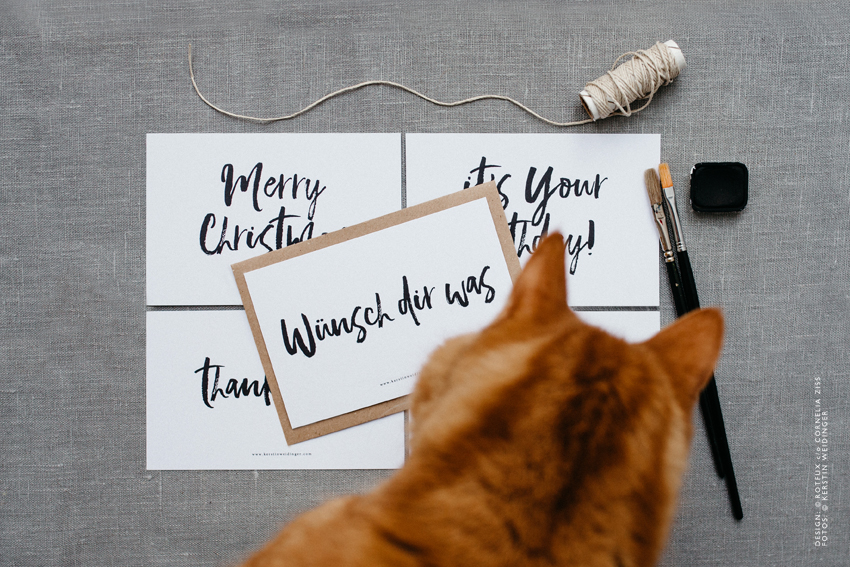 Merry
Christm
it's Your
thday!
Wünsch dir was
than
www.kerstinweidinger.com
DESIGN: © ROTFUX c/o CORNELIA ZISS
FOTOS: © KERSTIN WEIDINGER